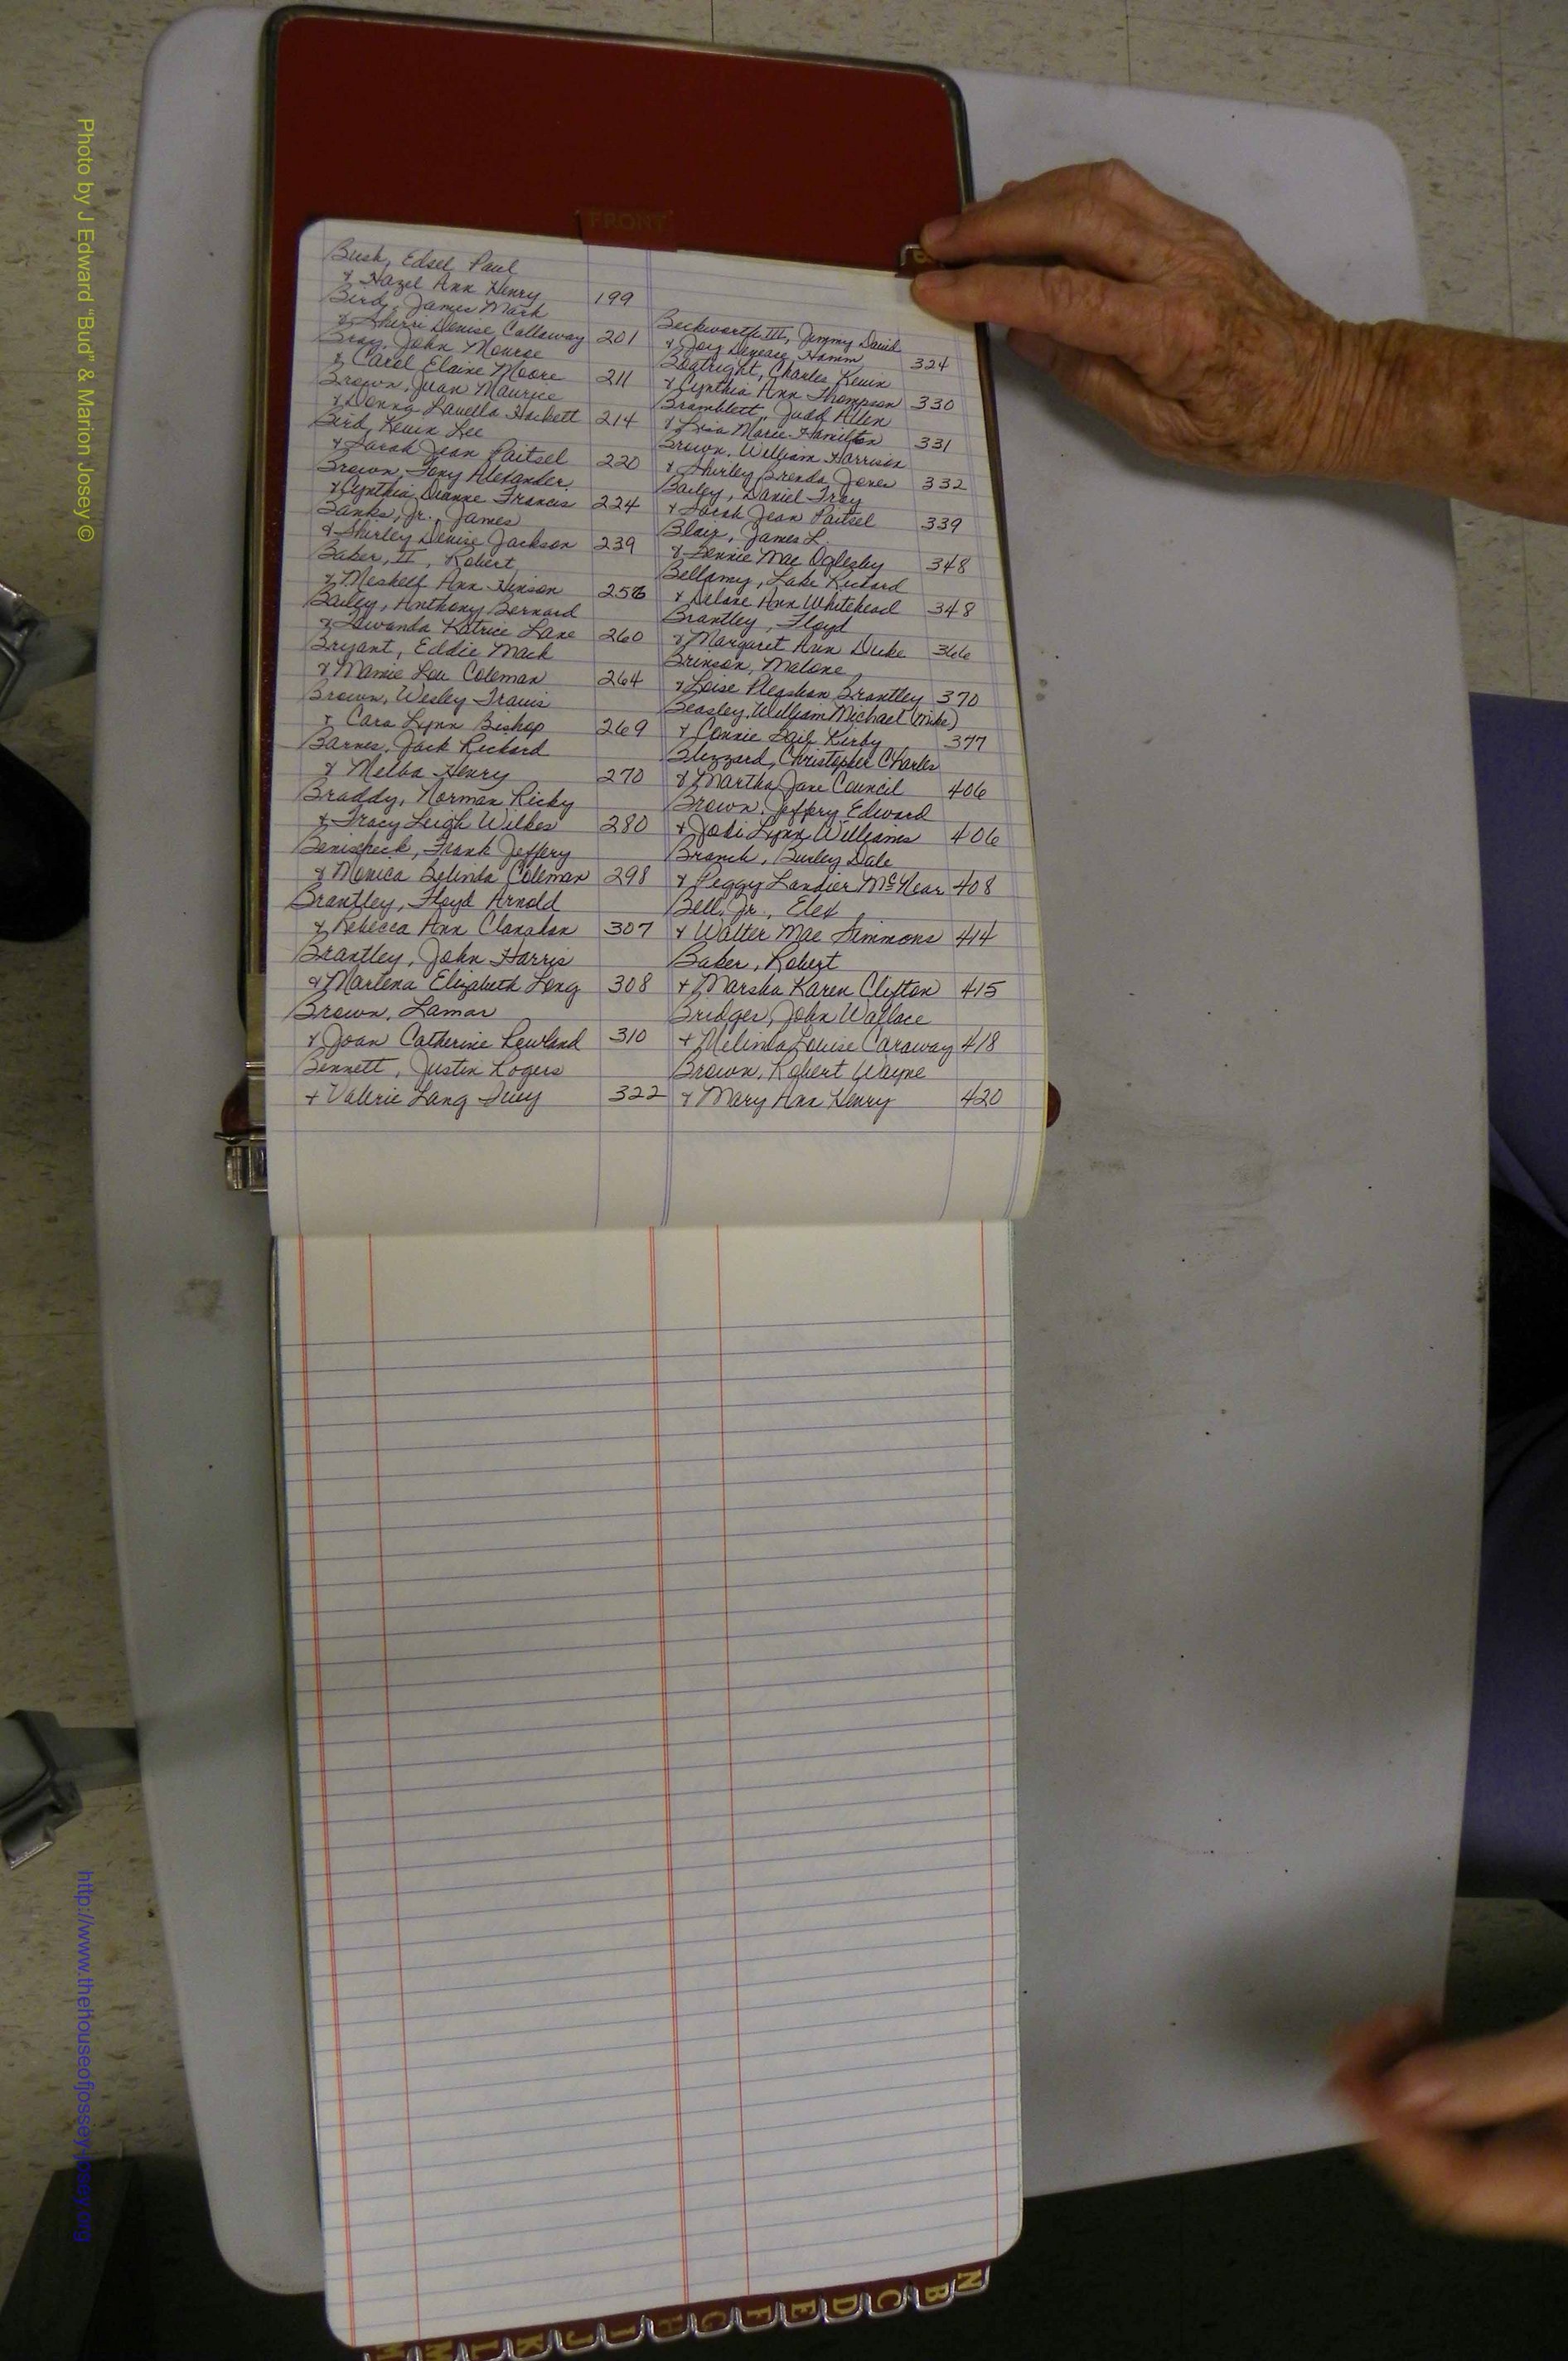 FRONT
B
Bush, Edsel Paul
& Hazel Ann Henry 199
Bird, James Mark
& Sherri Denise Calloway 201
Bray, John Monroe
& Carol Elaine Moore 211
Brown, Juan Maurice
& Donna Lavella Hackett 214
Bird, Kevin Lee
& Sarah Jean Paitsel 220
Brown, Tony Alexander
& Cynthia Dianne Francis 224
Banks, Jr. James
& Shirley Denise Jackson 239
Baker, II, Robert
& Meshell Ann Hinson
Bailey, Anthony Bernard
& Lawanda Katrice Lane 260
Bryant, Eddie Mack
& Mamie Lou Coleman 264
Brown, Wesley Travis
& Cara Lynn Bishop 269
Barnes, Jack Rickard
& Melba Henry 270
Braddy, Norman Ricky
& Tracy Leigh Wilkes 280
Frank Jeffery
& Monica Belinda Coleman 298
Brantley, Floyd Arnold
& Rebecca Ann Clanahan 307
Brantley, John Harris
& Martena Elizabeth Long 308
Brown, Lamar
& Joan Catherine Rowland 310
Bennett, Justin Rogers
+ Valerie Lang 322
Beckworth III, Jimmy David
& Joy Hamm 324
Boatright, Charles Kevin
& Cynthia Ann Thompson 330
Bramblett, Judd Allen
& Lisa Marie Hamilton 331
Brown, William Harrison
& Shirley Brenda Jones 332
Bailey, Daniel Troy
& Sarah Jean Paitsel 339
Blair, James L.
& Mae Oglesby 348
Bellamy, Luke Rickard
& Delane Ann Whitehead 348
Brantley, Floyd
& Margaret Ann Duke 366
Brinson, Malone
& Loise Brantley 370
Beasley, William Michael (Mike)
& Connie Gail Kirby 377
Blizzard, Christopher Charles
& Martha Jane Council 406
Brown, Jeffery Edward
& Jodi Lynn Williams 406
Branch, Burley Dale
& Peggy Landier McNear 408
Bell, Jr., Elex
& Walter Mae Simmons 414
Baker, Robert
+ Marsha Karen Clifton 415
Bridges, John Wallace
+ Melinda Louise Caraway 418
Brown, Robert Wayne
& Mary Ann Henry 420
M L K J I H G F E D C B N
Photo by J Edward "Bud" & Marion Josey ©
http://www.thehouseofjossey-josey.org